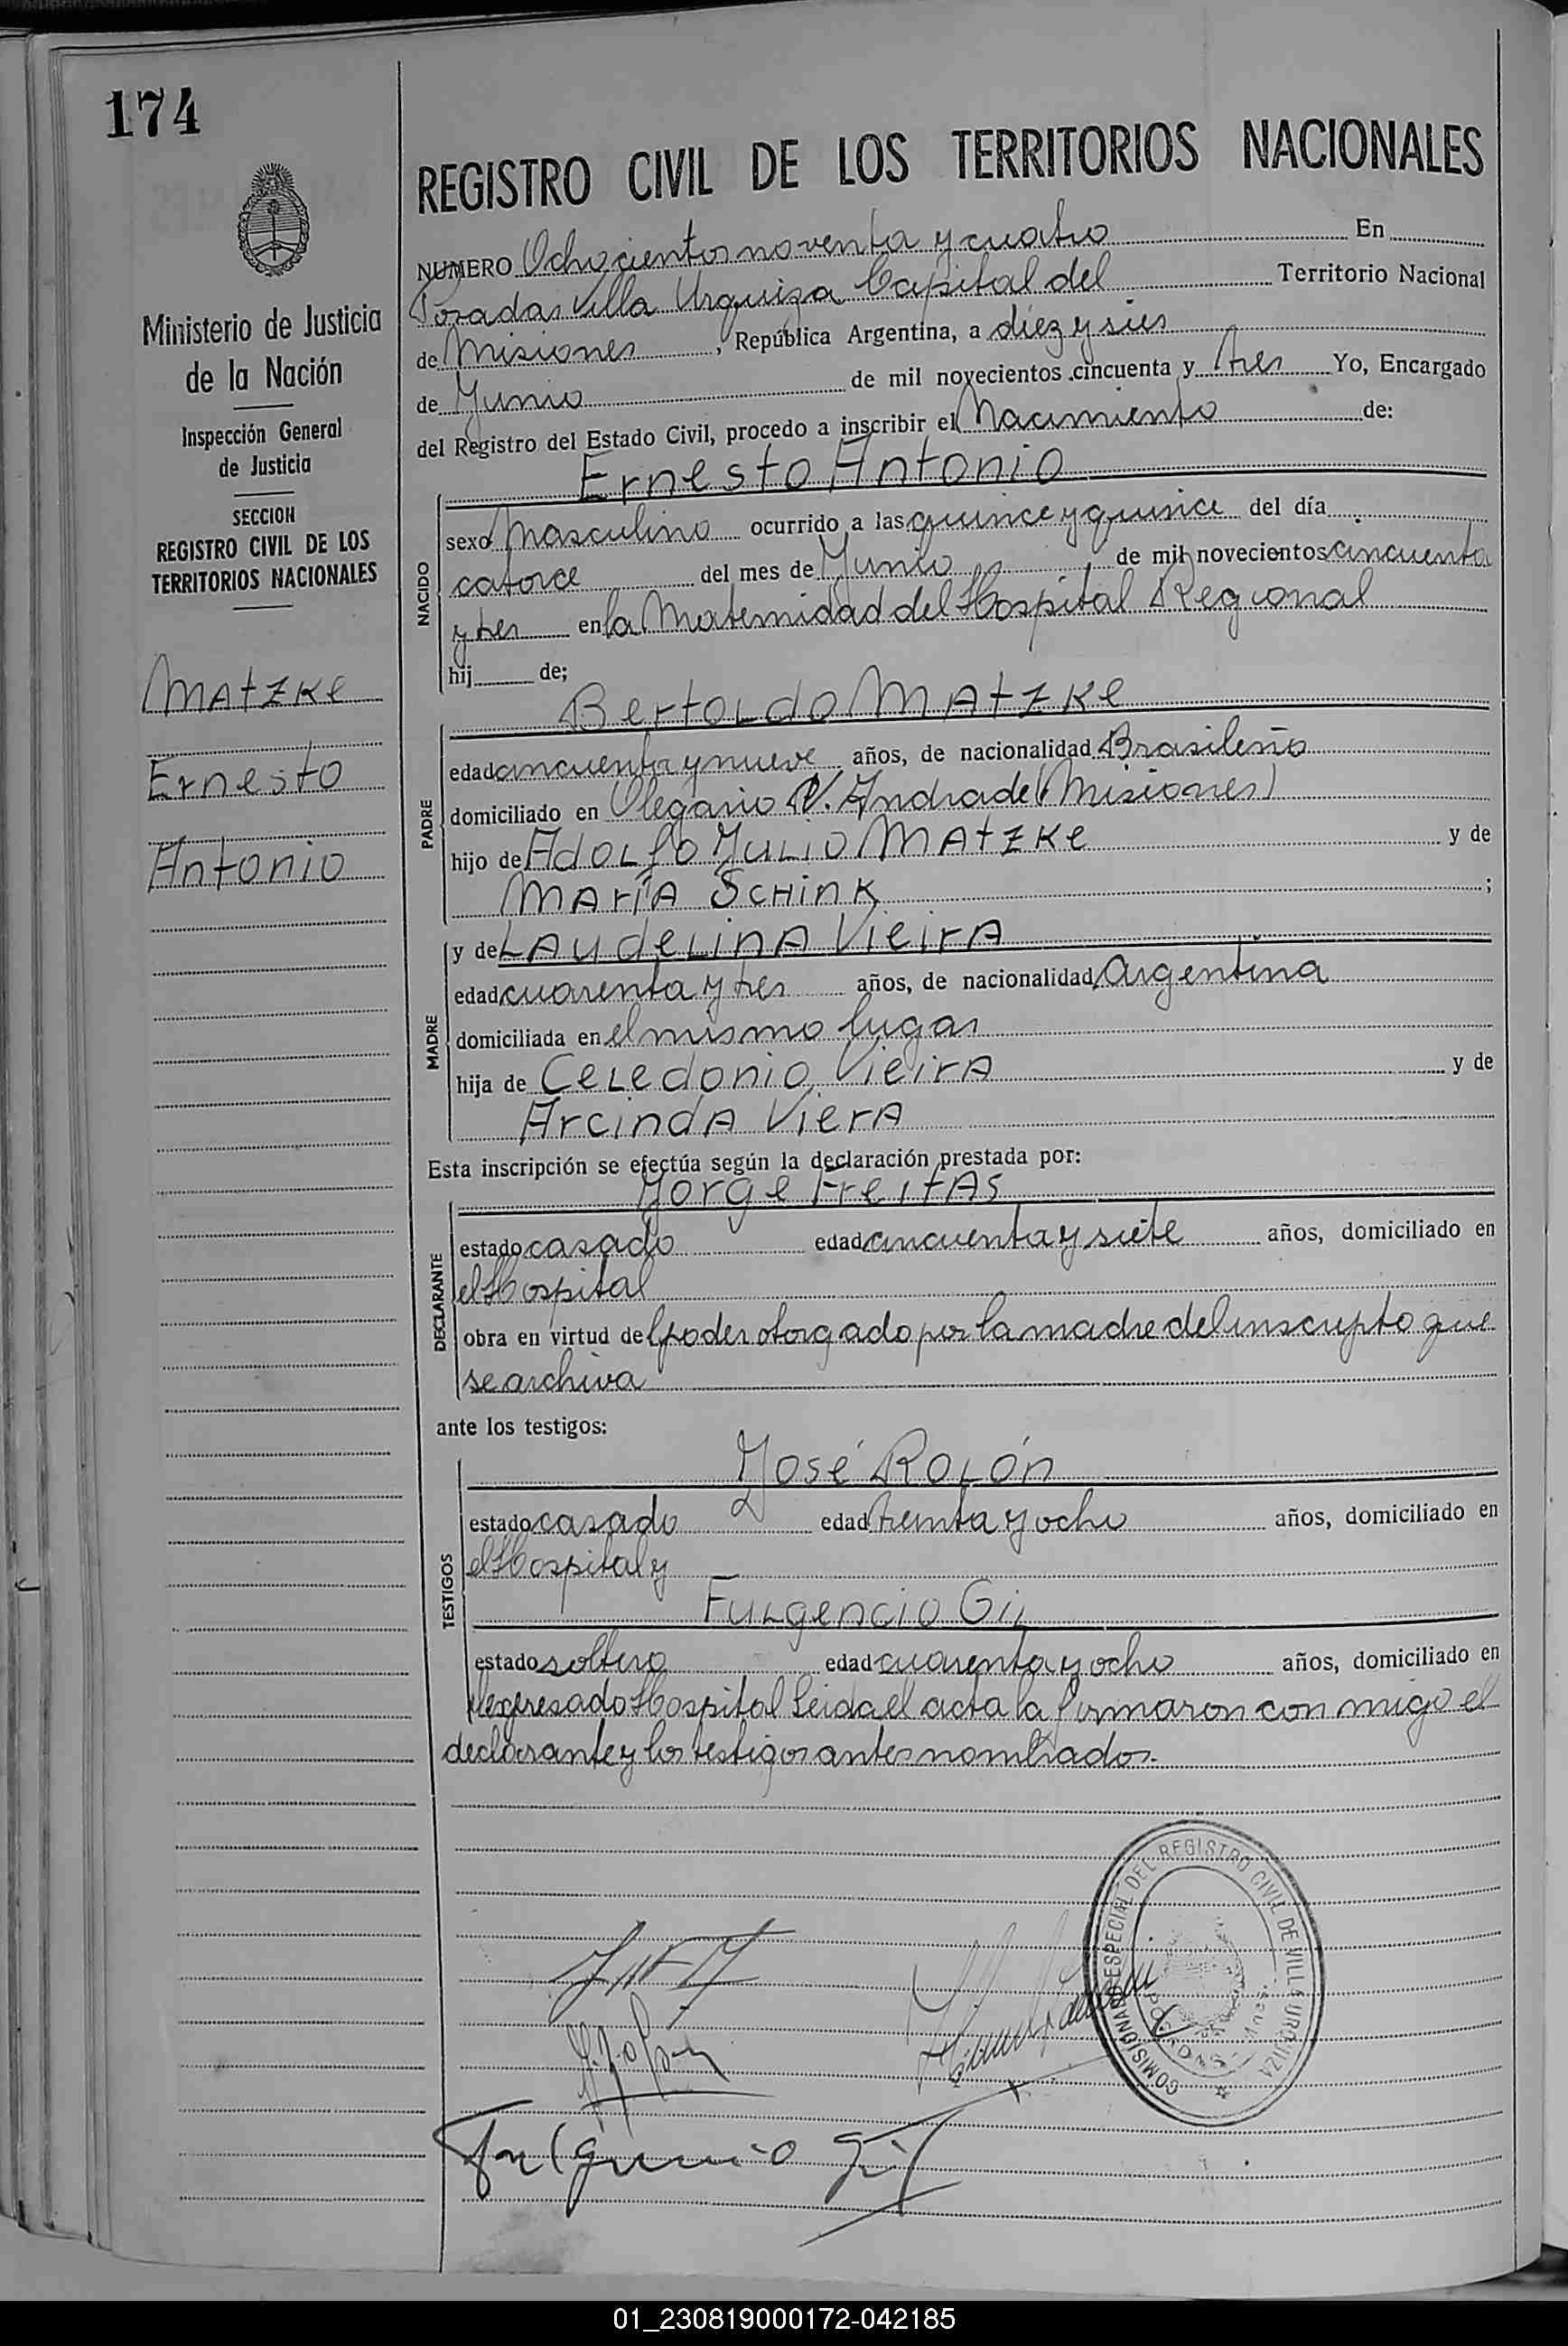 174
Ministerio de Justicia
de la Nación
Inspección General
de Justicia
SECCION
REGISTRO CIVIL DE LOS
TERRITORIOS NACIONALES
Matzke
Ernesto
Antonio
REGISTRO CIVIL DE LOS TERRITORIOS NACIONALES
NUMERO Ochocientos noventa y cuatro En
Posadas Villa Urquiza Capital del Territorio Nacional
de Misiones, República Argentina, a diez y seis
de Junio de mil novecientos cincuenta y tres Yo, Encargado
del Registro del Estado Civil, procedo a inscribir el Nacimiento de:
Ernesto Antonio
NACIDO
sexo Masculino ocurrido a las quince y quince del día
catorce del mes de Junio de mil novecientos cincuenta
y tres en la Maternidad del Hospital Regional
hij de;
Bertoldo Matzke
PADRE
edad cincuenta y nueve años, de nacionalidad Brasileño
domiciliado en Olegario V. Andrade (Misiones)
hijo de Adolfo Julio Matzke y de
María Schink ;
y de Laudelina Vieira
MADRE
edad cuarenta y tres años, de nacionalidad Argentina
domiciliada en el mismo lugar
hija de Celedonio Vieira y de
Arcinda Viera
Esta inscripción se efectúa según la declaración prestada por:
Jorge Freitas
DECLARANTE
estado casado edad cincuenta y siete años, domiciliado en
el Hospital
obra en virtud del poder otorgado por la madre del inscripto que
se archiva
ante los testigos:
José Rolón
TESTIGOS
estado casado edad treinta y ocho años, domiciliado en
el Hospital y
Fulgencio Gil
estado soltero edad cuarenta y ocho años, domiciliado en
el expresado Hospital Leida el acta la firmaron con migo el
declarante y los testigos antes nombrados.-
COMISIONADO ESPECIAL DEL REGISTRO CIVIL DE VILLA URQUIZA
POSADAS
Fulgencio Gil
01_230819000172-042185